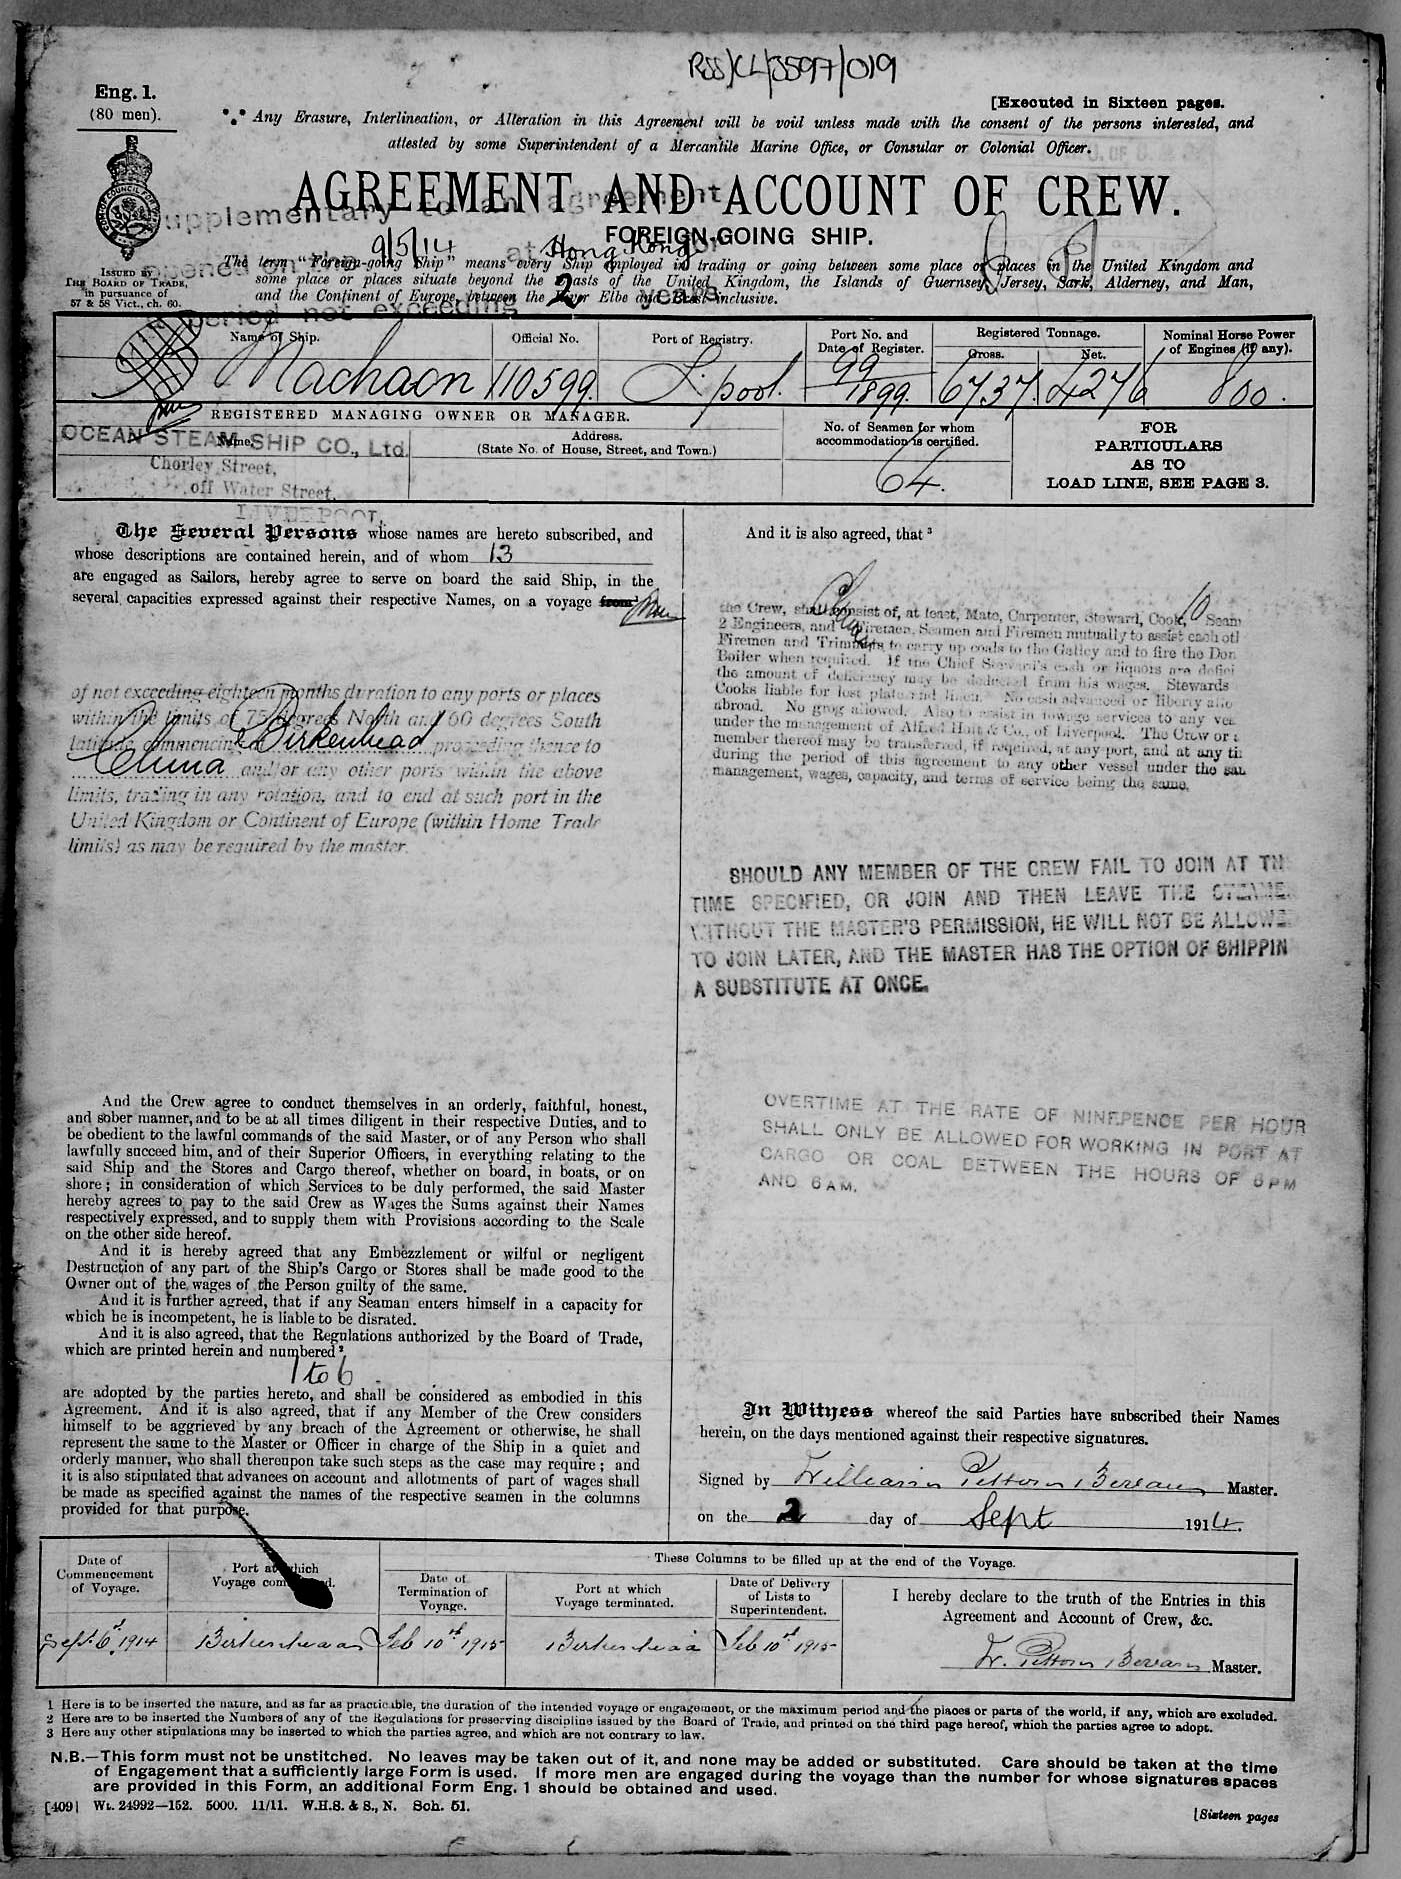 RSS/CL/3597/019
Eng. 1.
(80 men).
[Executed in Sixteen pages.
*.* Any Erasure, Interlineation, or Alteration in this Agreement will be void unless made with the consent of the persons interested, and
attested by some Superintendent of a Mercantile Marine Office, or Consular or Colonial Officer.
AGREEMENT AND ACCOUNT OF CREW.
Supplementary to an agreement
FOREIGN-GOING SHIP.
opened on the 9/5/14 at Hong Kong for
a period not exceeding 2 years
ISSUED BY
THE BOARD OF TRADE,
in pursuance of
57 & 58 Vict., ch. 60.
The term "Foreign-going Ship" means every Ship employed in trading or going between some place or places in the United Kingdom and
some place or places situate beyond the Coasts of the United Kingdom, the Islands of Guernsey, Jersey, Sark, Alderney, and Man,
and the Continent of Europe, between the River Elbe and Brest inclusive.
Name of Ship.
Official No.
Port of Registry.
Port No. and
Date of Register.
Registered Tonnage.
Gross.
Net.
Nominal Horse Power
of Engines (if any).
Machaon
110599
L'pool.
99
1899
6737
4276
800.
REGISTERED MANAGING OWNER OR MANAGER.
Name.
Address.
(State No. of House, Street, and Town.)
OCEAN STEAM SHIP CO., Ltd.
Chorley Street,
off Water Street,
LIVERPOOL.
No. of Seamen for whom
accommodation is certified.
64.
FOR
PARTICULARS
AS TO
LOAD LINE, SEE PAGE 3.
The Several Persons whose names are hereto subscribed, and
whose descriptions are contained herein, and of whom 13
are engaged as Sailors, hereby agree to serve on board the said Ship, in the
several capacities expressed against their respective Names, on a voyage from¹
of not exceeding eighteen months duration to any ports or places
within the limits of 75 degrees North and 60 degrees South
latitude, commencing Birkenhead proceeding thence to
China and/or any other ports within the above
limits, trading in any rotation, and to end at such port in the
United Kingdom or Continent of Europe (within Home Trade
limits) as may be required by the master.
And the Crew agree to conduct themselves in an orderly, faithful, honest,
and sober manner, and to be at all times diligent in their respective Duties, and to
be obedient to the lawful commands of the said Master, or of any Person who shall
lawfully succeed him, and of their Superior Officers, in everything relating to the
said Ship and the Stores and Cargo thereof, whether on board, in boats, or on
shore; in consideration of which Services to be duly performed, the said Master
hereby agrees to pay to the said Crew as Wages the Sums against their Names
respectively expressed, and to supply them with Provisions according to the Scale
on the other side hereof.
And it is hereby agreed that any Embezzlement or wilful or negligent
Destruction of any part of the Ship's Cargo or Stores shall be made good to the
Owner out of the wages of the Person guilty of the same.
And it is further agreed, that if any Seaman enters himself in a capacity for
which he is incompetent, he is liable to be disrated.
And it is also agreed, that the Regulations authorized by the Board of Trade,
which are printed herein and numbered²
1 to 6
are adopted by the parties hereto, and shall be considered as embodied in this
Agreement. And it is also agreed, that if any Member of the Crew considers
himself to be aggrieved by any breach of the Agreement or otherwise, he shall
represent the same to the Master or Officer in charge of the Ship in a quiet and
orderly manner, who shall thereupon take such steps as the case may require; and
it is also stipulated that advances on account and allotments of part of wages shall
be made as specified against the names of the respective seamen in the columns
provided for that purpose.
And it is also agreed, that ³
the Crew, shall consist of, at least, Mate, Carpenter, Steward, Cook, 10 Seam
2 Engineers, and Firemen, Seamen and Firemen mutually to assist each oth
Firemen and Trimmers to carry up coals to the Galley and to fire the Don
Boiler when required. If the Chief Steward's cash or liquors are defici
the amount of deficiency may be deducted from his wages. Stewards
Cooks liable for lost plate and linen. No cash advanced or liberty allo
abroad. No grog allowed. Also to assist in towage services to any ves
under the management of Alfred Holt & Co., of Liverpool. The Crew or a
member thereof may be transferred, if required, at any port, and at any ti
during the period of this agreement to any other vessel under the sam
management, wages, capacity, and terms of service being the same.
SHOULD ANY MEMBER OF THE CREW FAIL TO JOIN AT TH
TIME SPECIFIED, OR JOIN AND THEN LEAVE THE STEAME
WITHOUT THE MASTER'S PERMISSION, HE WILL NOT BE ALLOWE
TO JOIN LATER, AND THE MASTER HAS THE OPTION OF SHIPPIN
A SUBSTITUTE AT ONCE.
OVERTIME AT THE RATE OF NINEPENCE PER HOUR
SHALL ONLY BE ALLOWED FOR WORKING IN PORT AT
CARGO OR COAL BETWEEN THE HOURS OF 6 PM
AND 6 AM.
In Witness whereof the said Parties have subscribed their Names
herein, on the days mentioned against their respective signatures.
Signed by William Master.
on the 2 day of Sept 1914.
Date of
Commencement
of Voyage.
Port at which
Voyage commenced.
These Columns to be filled up at the end of the Voyage.
Date of
Termination of
Voyage.
Port at which
Voyage terminated.
Date of Delivery
of Lists to
Superintendent.
I hereby declare to the truth of the Entries in this
Agreement and Account of Crew, &c.
Sept. 6 1914
Birkenhead
Feb 10 1915
Birkenhead
Feb 10 1915
W. Master.
1 Here is to be inserted the nature, and as far as practicable, the duration of the intended voyage or engagement, or the maximum period and the places or parts of the world, if any, which are excluded.
2 Here are to be inserted the Numbers of any of the Regulations for preserving discipline issued by the Board of Trade, and printed on the third page hereof, which the parties agree to adopt.
3 Here any other stipulations may be inserted to which the parties agree, and which are not contrary to law.
N.B.—This form must not be unstitched. No leaves may be taken out of it, and none may be added or substituted. Care should be taken at the time
of Engagement that a sufficiently large Form is used. If more men are engaged during the voyage than the number for whose signatures spaces
are provided in this Form, an additional Form Eng. 1 should be obtained and used.
[409] Wt. 24992—152. 5000. 11/11. W.H.S. & S., N. Sch. 51.
[Sixteen pages